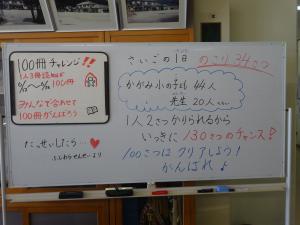 100冊チャレンジ!!
1人3冊読めば
100冊
みんなで合わせて
100冊がんばろう
たっせいしたら…♥
ふじわらせんせいより
さいごの1日
のこり34さつ
かがみ小の子ども 44人
先生 20人
1人2さつかりられるから
いっきに130さつのチャンス!
100さつはクリアしよう!
がんばれ♪